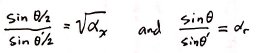 sin θ/2 / sin θ'/2 = √αₓ and sin θ / sin θ' = αᵣ